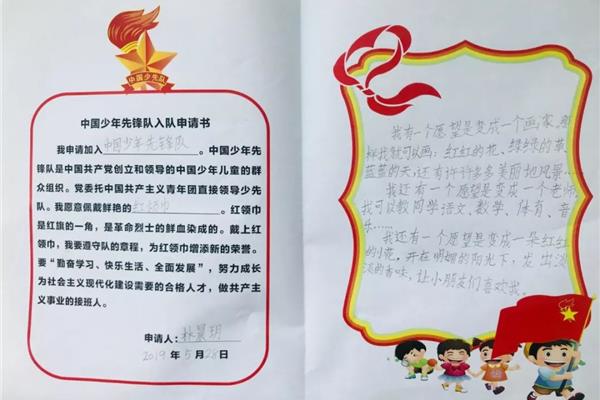 中国少先队
中国少年先锋队入队申请书
我申请加入中国少年先锋队。中国少年先
锋队是中国共产党创立和领导的中国少年儿童的群
众组织。党委托中国共产主义青年团直接领导少先
队。我愿意佩戴鲜艳的红领巾。红领巾
是红旗的一角,是革命烈士的鲜血染成的。戴上红
领巾,我要遵守队的章程,为红领巾增添新的荣誉。
要“勤奋学习、快乐生活、全面发展”,努力成长
为社会主义现代化建设需要的合格人才,做共产主
义事业的接班人。
申请人:林景玥
2019年5月28日
我有一个愿望是变成一个画家,那
样我就可以画:红红的花、绿绿的草、
蓝蓝的天,还有许许多多美丽地风景……
我还有一个愿望是变成一个老师,
我可以教同学语文、数学、体育、音
乐……
我还有一个愿望是变成一朵红红
的小花,开在明媚的阳光下,发出淡
淡的香味,让小朋友们喜欢我。